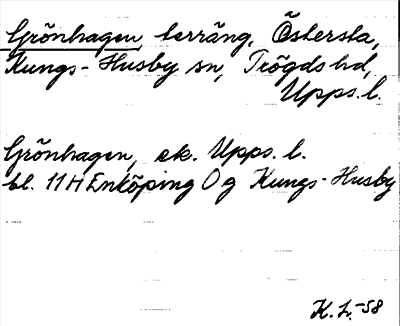 Grönhagen, terräng, Östersta,
Kungs-Husby sn, Trögds hd,
Upps. l.
Grönhagen, ek. Upps. l.
bl. 11H Enköping 0g Kungs-Husby
K.L.-58